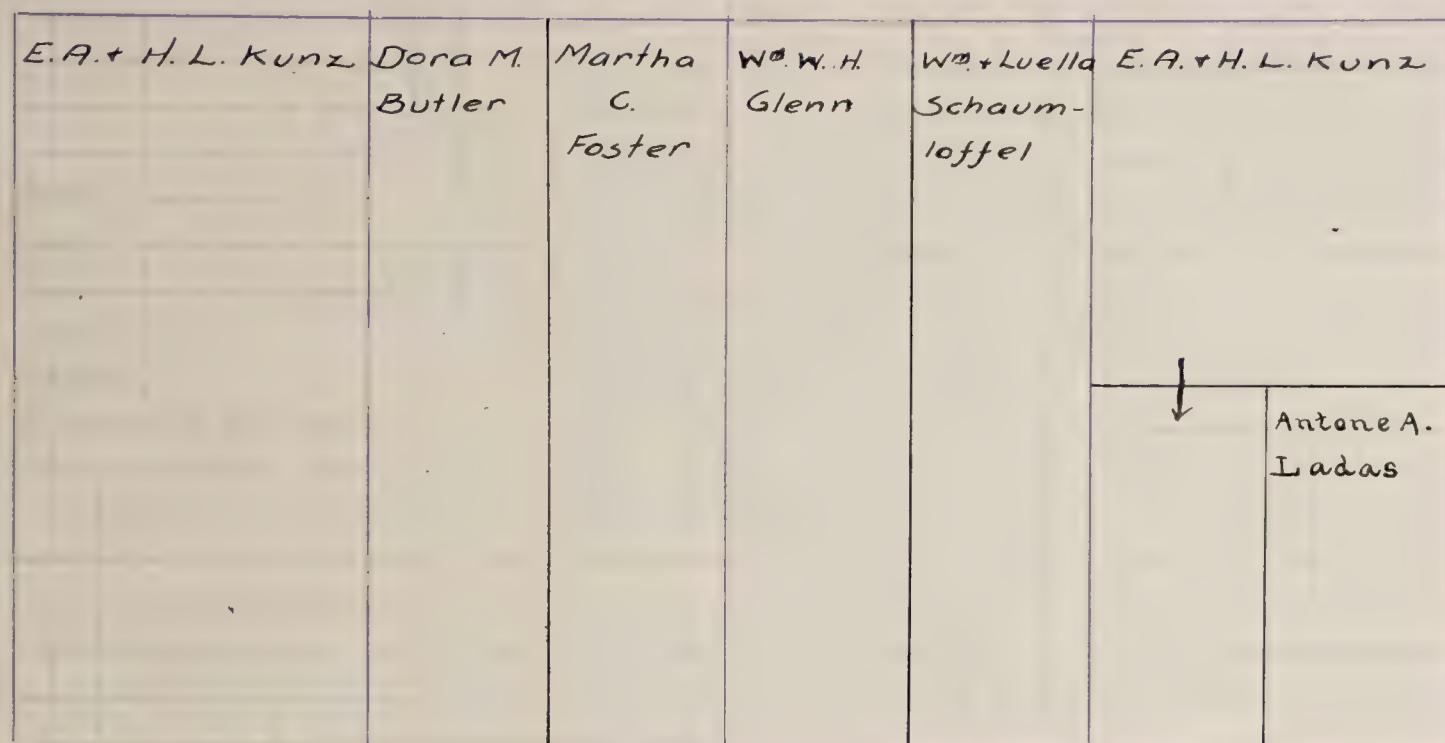 E.A. + H. L. Kunz
Dora M.
Butler
Martha
C.
Foster
Wm. W. H.
Glenn
Wm. + Luella
Schaum-
loffel
E. A. + H. L. Kunz
Antone A.
Ladas